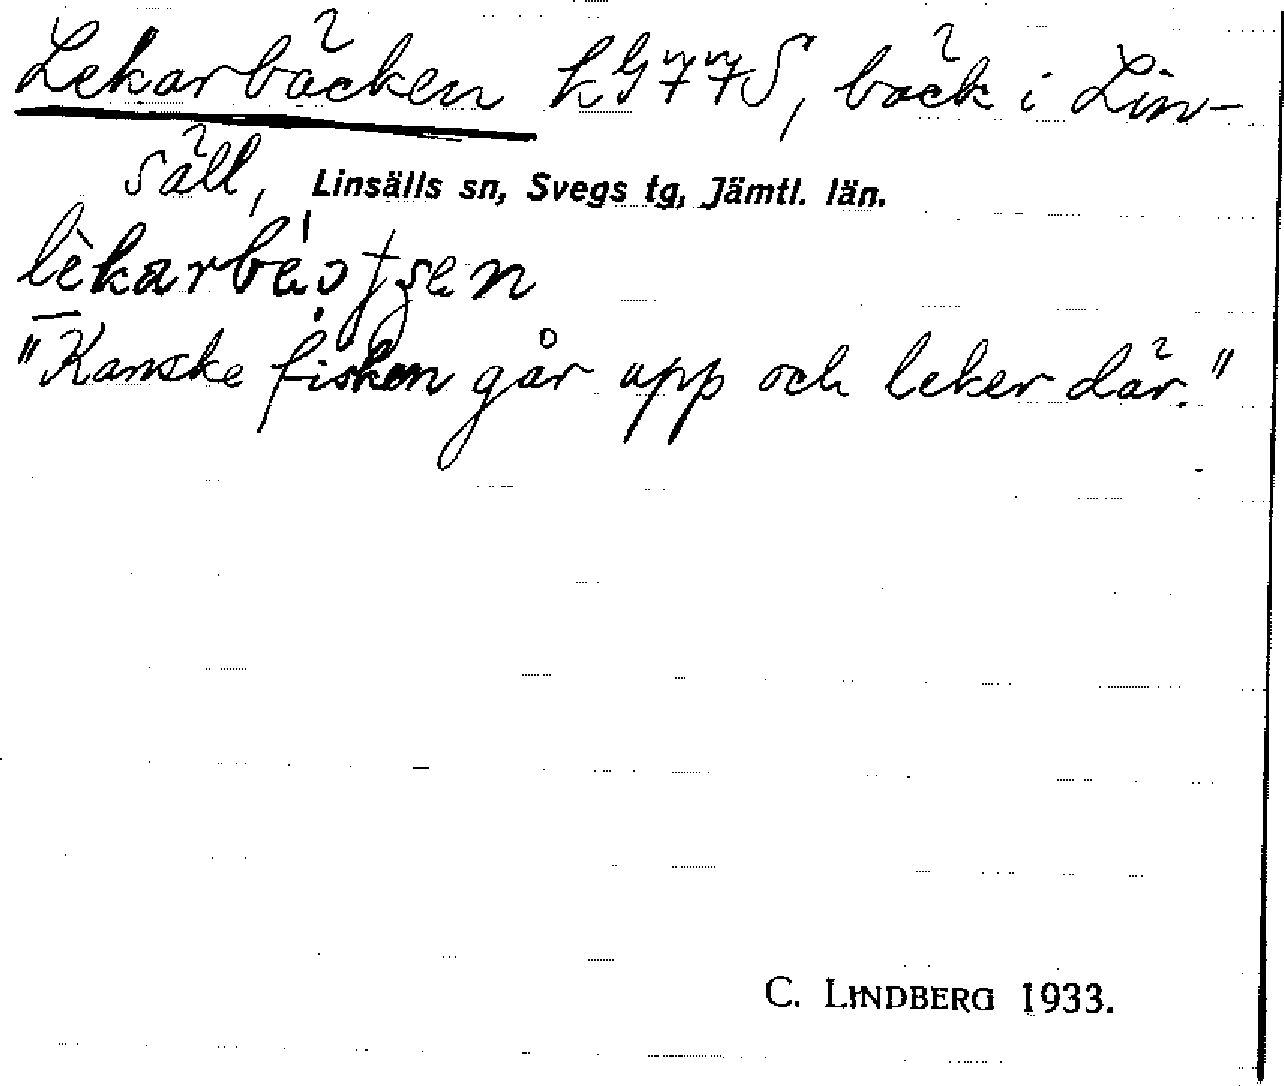 Lekarbäcken LG77S, bäck i Lin-
säll, Linsälls sn, Svegs tg, Jämtl. län.
"Kanske fisken går upp och leker där."
C. LINDBERG 1933.